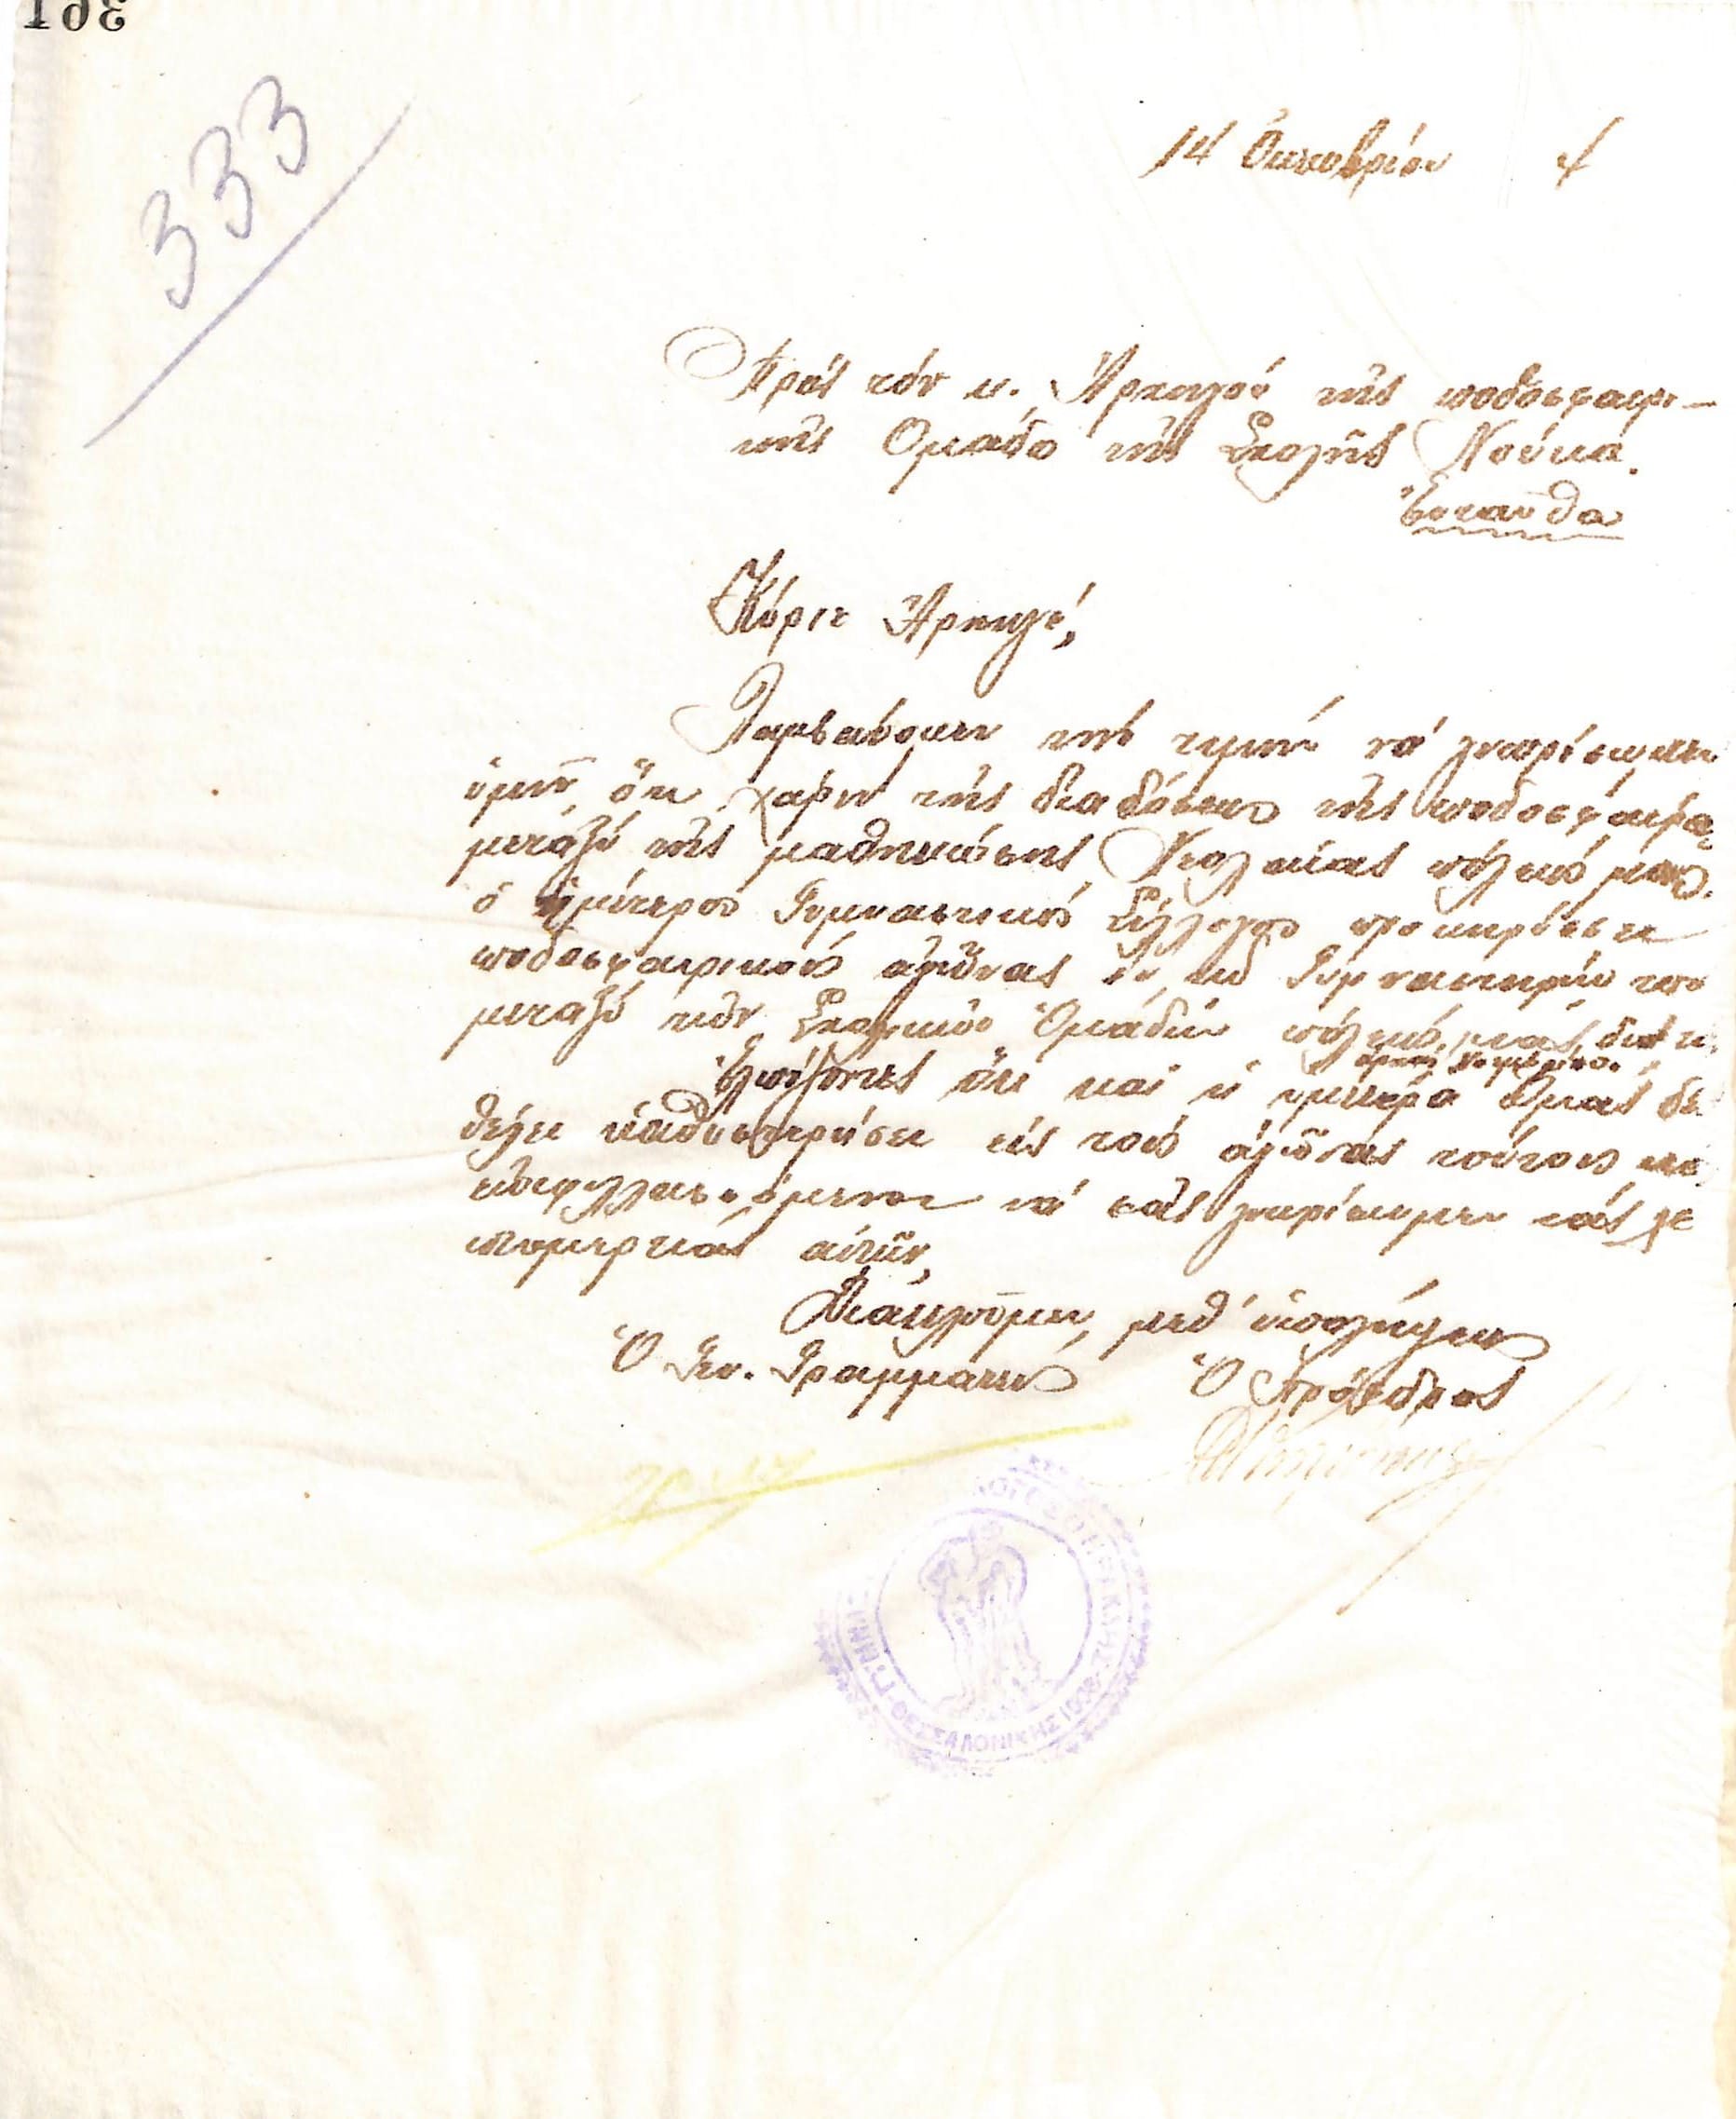 361
333
14 Ὀκτωβρίου 4
Πρὸς τὸν κ. Ἀρχηγὸν τῆς ποδοσφαιρι-
κῆς Ὁμάδος τῆς Σχολῆς Νούκα.
Ἐνταῦθα
Κύριε Ἀρχηγέ,
Λαμβάνομεν τὴν τιμὴν νὰ γνωρίσωμεν
ὑμῖν, ὅτι χάριν τῆς διαδόσεως τῆς ποδοσφαίρας
μεταξὺ τῆς μαθητιώσης Νεολαίας πόλεως μας
ὁ ἡμέτερος Γυμναστικὸς Σύλλογος προκηρύσσει
ποδοσφαιρικοὺς ἀγῶνας ἐν τῷ Γυμναστηρίῳ του
μεταξὺ τῶν Σχολικῶν Ὁμάδων πόλεώς μας διὰ τὰς
ἀρχὰς Νοεμβρίου.
Ἐλπίζοντες ὅτι καὶ ἡ ὑμετέρα Ὁμὰς δὲ
θέλει καθυστερήσει εἰς τοὺς ἀγῶνας τούτους καὶ
ἐπιφυλλασσόμενοι νὰ σᾶς γνωρίσωμεν τὰς λε
πτομερείας αὐτῶν,
Διατελοῦμεν, μεθ' ὑπολήψεως
Ὁ Γεν. Γραμματεὺς Ὁ Πρόεδρος
ΘΕΣΣΑΛΟΝΙΚΗΣ 1908